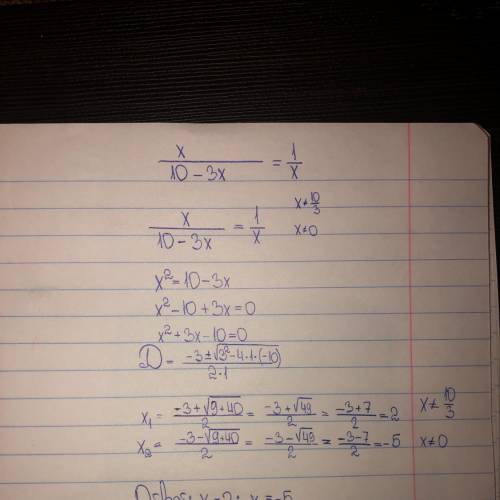 x/(10-3x) = 1/x
x/(10-3x) = 1/x x≠10/3
x≠0
x²=10-3x
x²-10+3x=0
x²+3x-10=0
D= (-3±√(3²-4·1·(-10)))/(2·1)
x₁= (-3+√(9+40))/2 = (-3+√49)/2 = (-3+7)/2 =2 x≠10/3
x₂= (-3-√(9+40))/2 = (-3-√49)/2 = (-3-7)/2 =-5 x≠0